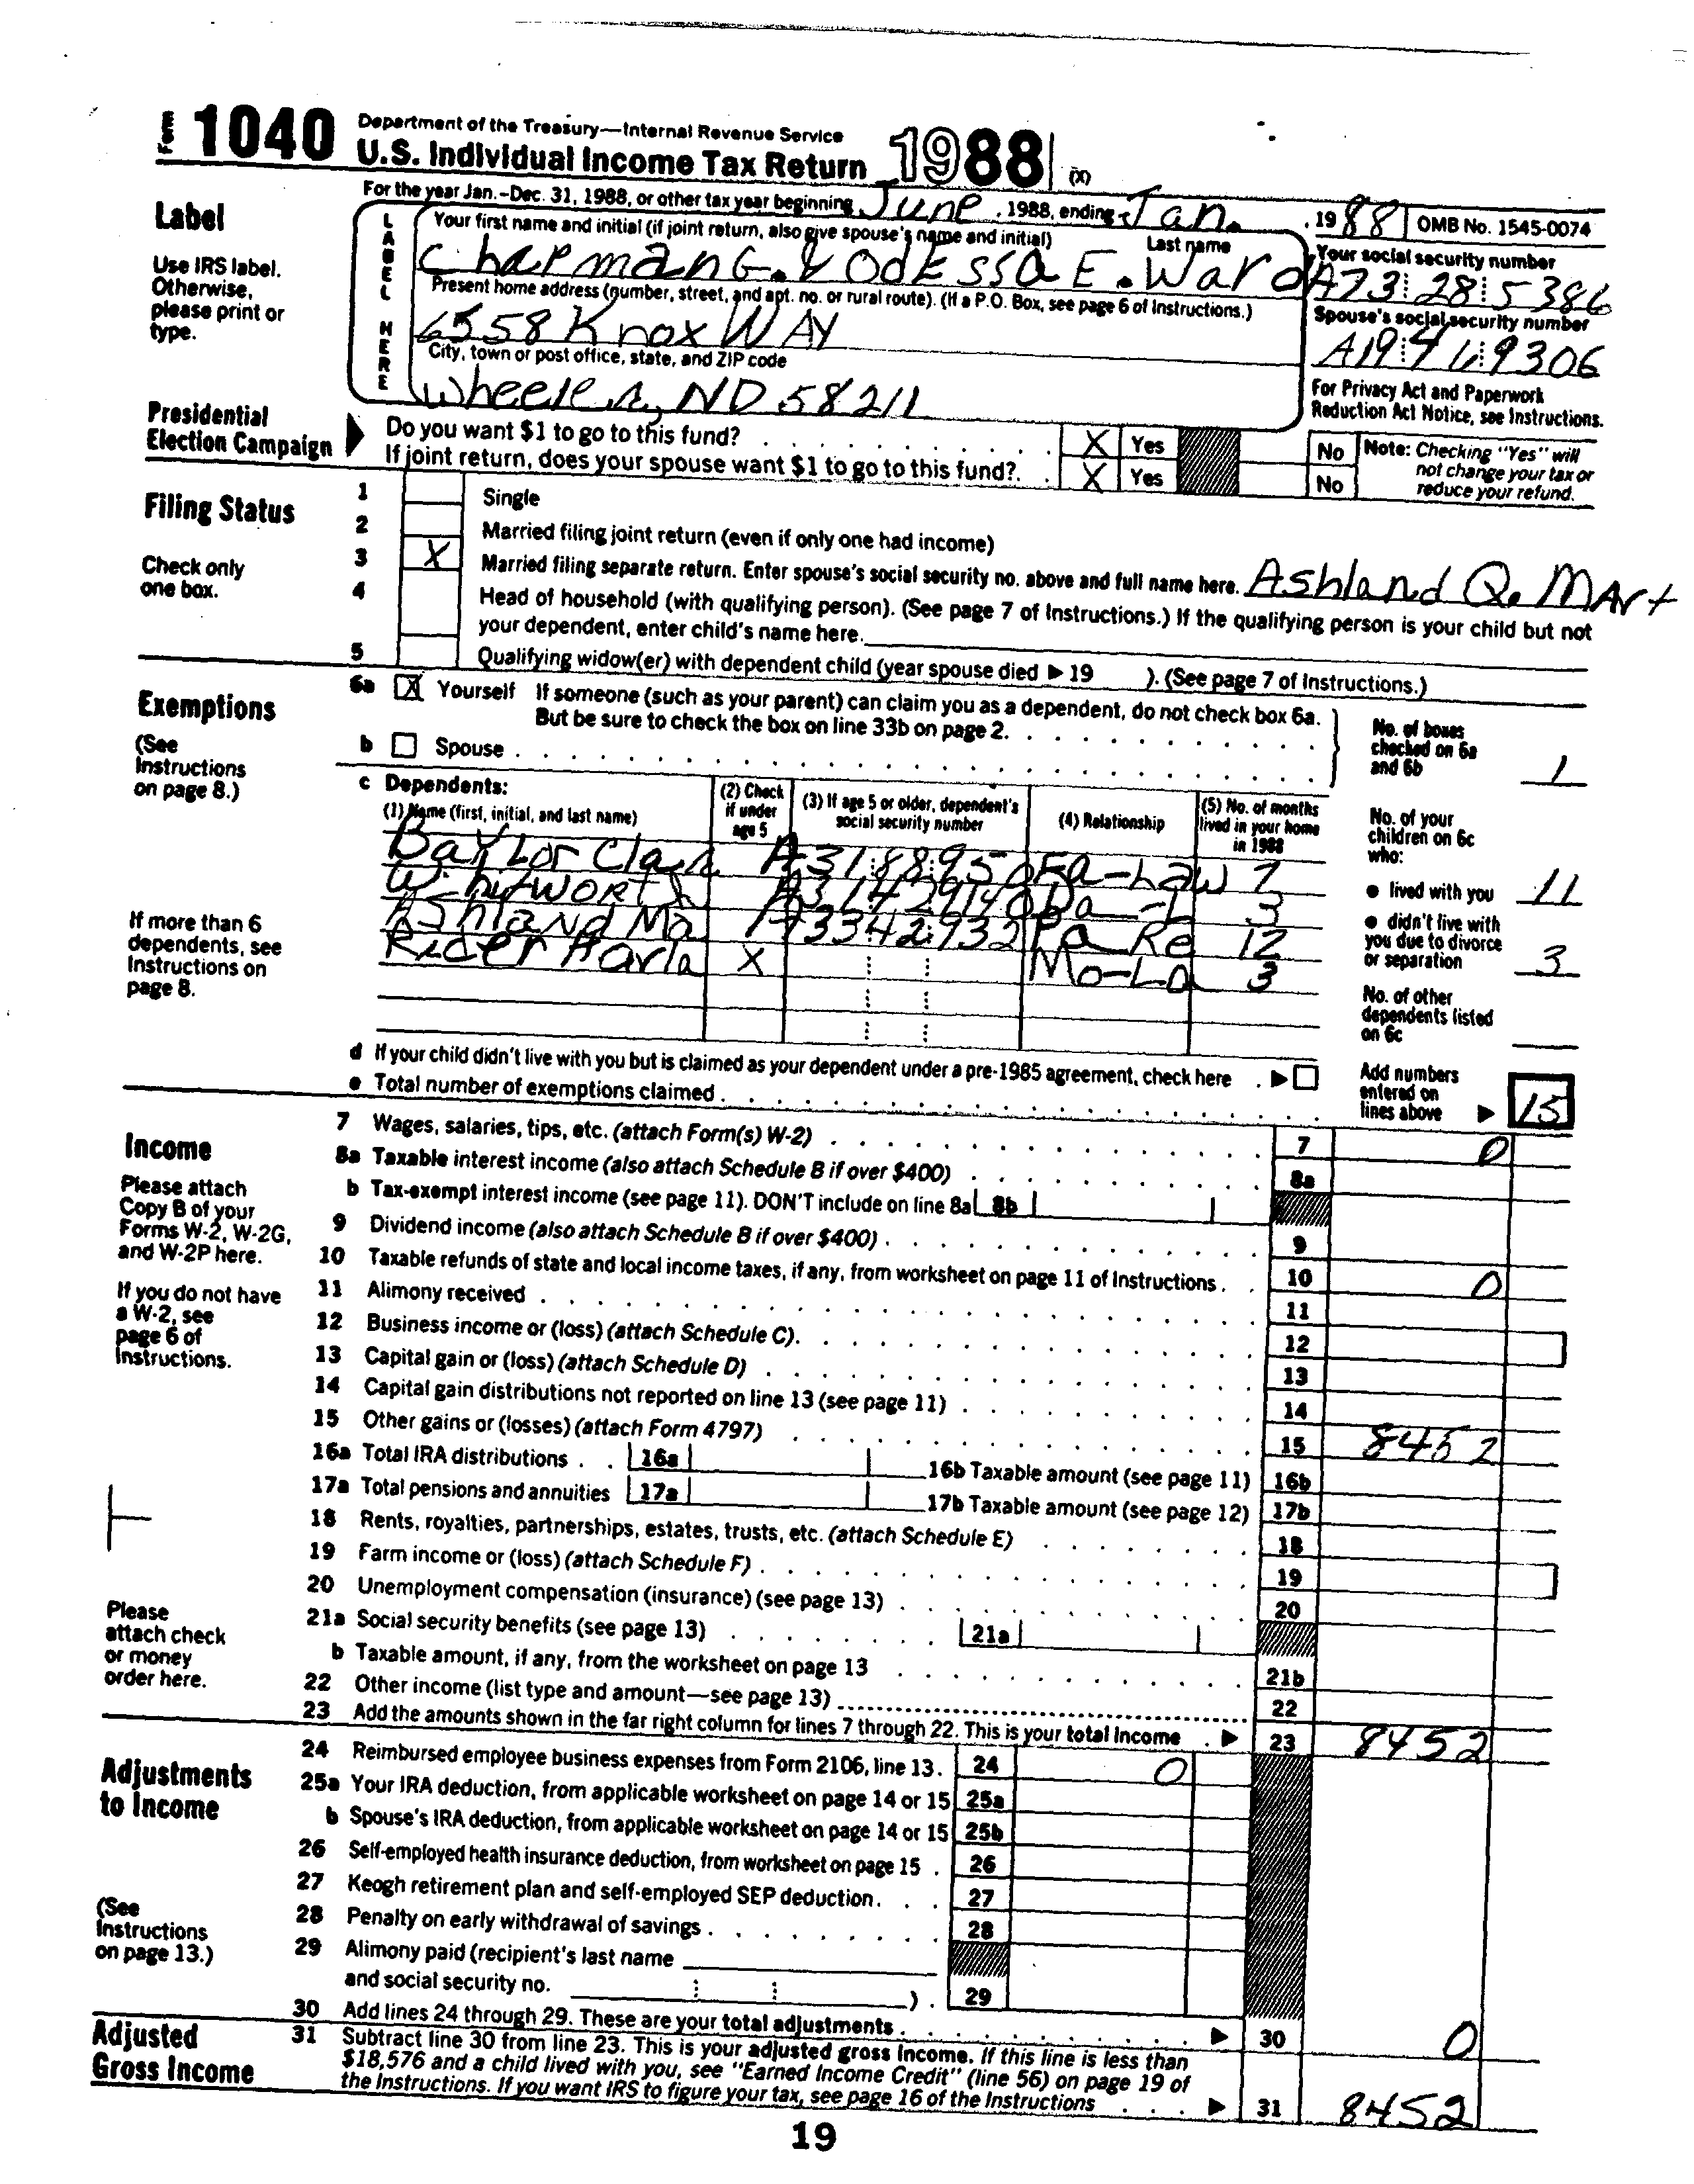 Form 1040 Department of the Treasury—Internal Revenue Service
U.S. Individual Income Tax Return 1988 (X)
For the year Jan.-Dec. 31, 1988, or other tax year beginning June , 1988, ending Jan. , 19 88 OMB No. 1545-0074
Label
Use IRS label. Otherwise, please print or type.
LABEL HERE
Your first name and initial (if joint return, also give spouse's name and initial) Last name
Chapman G. & Odessa E. Ward
Your social security number
A73 28 5386
Present home address (number, street, and apt. no. or rural route). (If a P.O. Box, see page 6 of Instructions.)
6558 Knox WAY
Spouse's social security number
A19 9306
City, town or post office, state, and ZIP code
Wheeler, ND 58211
For Privacy Act and Paperwork Reduction Act Notice, see Instructions.
Presidential Election Campaign
Do you want $1 to go to this fund? X Yes No
If joint return, does your spouse want $1 to go to this fund? X Yes No
Note: Checking "Yes" will not change your tax or reduce your refund.
Filing Status
Check only one box.
1 Single
2 Married filing joint return (even if only one had income)
3 X Married filing separate return. Enter spouse's social security no. above and full name here. Ashland Q. MArt
4 Head of household (with qualifying person). (See page 7 of Instructions.) If the qualifying person is your child but not
your dependent, enter child's name here.
5 Qualifying widow(er) with dependent child (year spouse died ▶ 19 ). (See page 7 of Instructions.)
Exemptions
(See Instructions on page 8.)
6a X Yourself If someone (such as your parent) can claim you as a dependent, do not check box 6a.
But be sure to check the box on line 33b on page 2.
b Spouse
No. of boxes checked on 6a and 6b 1
c Dependents:
(1) Name (first, initial, and last name) (2) Check if under age 5 (3) If age 5 or older, dependent's social security number (4) Relationship (5) No. of months lived in your home in 1988
Baylor Clark A31 88 950 Fa-Law 7
Whitworth A31 42 9140 Da-L 3
Ashland Ma A33 42 932 Pa Re 12
Rider Harla X Mo-La 3
If more than 6 dependents, see Instructions on page 8.
No. of your children on 6c who:
● lived with you 11
● didn't live with you due to divorce or separation 3
No. of other dependents listed on 6c
d If your child didn't live with you but is claimed as your dependent under a pre-1985 agreement, check here ▶
e Total number of exemptions claimed
Add numbers entered on lines above ▶ 15
Income
Please attach Copy B of your Forms W-2, W-2G, and W-2P here.
If you do not have a W-2, see page 6 of Instructions.
Please attach check or money order here.
7 Wages, salaries, tips, etc. (attach Form(s) W-2) 7 0
8a Taxable interest income (also attach Schedule B if over $400) 8a
b Tax-exempt interest income (see page 11). DON'T include on line 8a 8b
9 Dividend income (also attach Schedule B if over $400) 9
10 Taxable refunds of state and local income taxes, if any, from worksheet on page 11 of Instructions 10 0
11 Alimony received 11
12 Business income or (loss) (attach Schedule C) 12
13 Capital gain or (loss) (attach Schedule D) 13
14 Capital gain distributions not reported on line 13 (see page 11) 14
15 Other gains or (losses) (attach Form 4797) 15 8452
16a Total IRA distributions 16a 16b Taxable amount (see page 11) 16b
17a Total pensions and annuities 17a 17b Taxable amount (see page 12) 17b
18 Rents, royalties, partnerships, estates, trusts, etc. (attach Schedule E) 18
19 Farm income or (loss) (attach Schedule F) 19
20 Unemployment compensation (insurance) (see page 13) 20
21a Social security benefits (see page 13) 21a
b Taxable amount, if any, from the worksheet on page 13 21b
22 Other income (list type and amount—see page 13) 22
23 Add the amounts shown in the far right column for lines 7 through 22. This is your total income ▶ 23 8452
Adjustments to Income
(See Instructions on page 13.)
24 Reimbursed employee business expenses from Form 2106, line 13. 24 0
25a Your IRA deduction, from applicable worksheet on page 14 or 15 25a
b Spouse's IRA deduction, from applicable worksheet on page 14 or 15 25b
26 Self-employed health insurance deduction, from worksheet on page 15 26
27 Keogh retirement plan and self-employed SEP deduction 27
28 Penalty on early withdrawal of savings 28
29 Alimony paid (recipient's last name
and social security no. ) 29
30 Add lines 24 through 29. These are your total adjustments ▶ 30 0
Adjusted Gross Income
31 Subtract line 30 from line 23. This is your adjusted gross income. If this line is less than
$18,576 and a child lived with you, see "Earned Income Credit" (line 56) on page 19 of
the Instructions. If you want IRS to figure your tax, see page 16 of the Instructions ▶ 31 8452
19